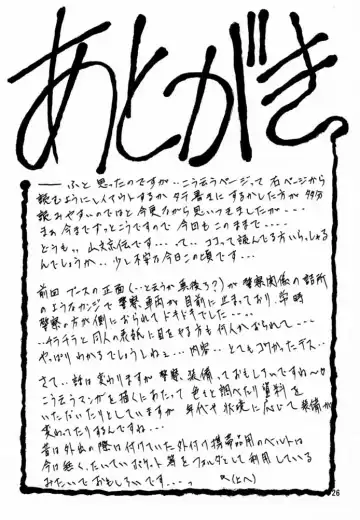 あとがき。
―― ふと思ったのですが‥こう云うページって右ページから
読むようにレイアウトするか タテ書きにするかした方が 多分
読みやすいのではと今更ながら思いつきましたが・・・
まぁ今までずっとこうですので 今回もこのままで・・・・
どうも。。山文京伝です・・・って‥ココって読んでる方いらっしゃる
んでしょうか‥少し不安な今日この頃です・・・
前回 ブースの正面(‥と云うか真後ろ?)が 警察関係の詰所
のようなカンジで 警察車両が目前に止まっており、常時
警察の方が側におられてドキドキでした・・・・
‥チラチラと同人の表紙に目をやる方も何人かおられて・・・
やっぱりわかるでしょうしねぇ・・・内容‥とてもコワかったデス‥
さて‥話は変わりますが 警察装備っておもしろいですね〜
こう云うマンガを描くにあたって 色々と調べたり資料を
いただいたりとしていますが 年代や状況に応じて装備が
変わってたりするんですね・・・
昔は外出の際に付けていた外付け携帯品用のベルトは
今は無く、たいていポケット等をフォルダとして利用している
みたいでおもしろいです・・・っ
26